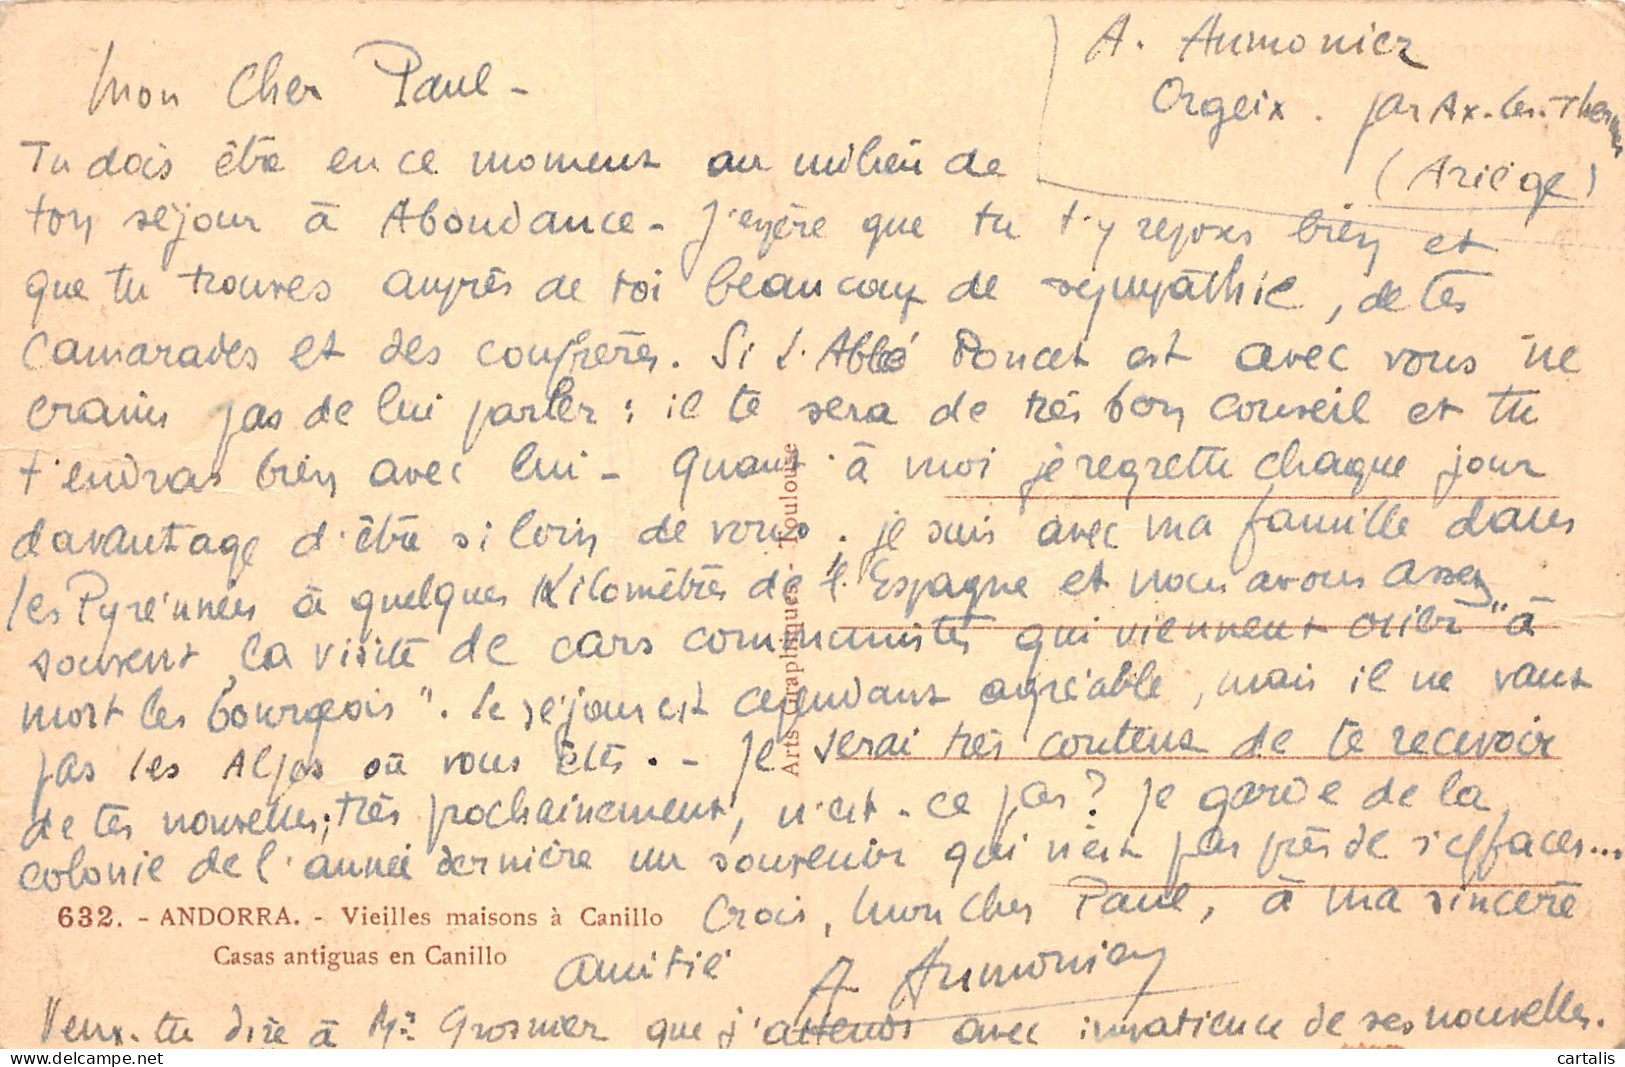 A. Aumonier
Orgeix. par Ax-les-Thermes
(Ariège)
Mon Cher Paul -
Tu dois être en ce moment au milieu de
ton séjour à Abondance - J'espère que tu t'y reposes bien et
que tu trouves auprès de toi beaucoup de sympathie, de tes
Camarades et des confrères. Si l'Abbé Poncet est avec vous ne
crains pas de lui parler : il te sera de très bon conseil et tu
t'endras bien avec lui - Quant à moi je regrette chaque jour
davantage d'être si loin de vous. je suis avec ma famille dans
les Pyrénnées à quelques Kilomètres de l'Espagne et nous avons assez
souvent la visite de cars communistes qui viennent crier "à
mort les bourgeois". Le séjour est cependant agréable, mais il ne vaut
pas les Alpes où vous êtes. - Je serai très content de te recevoir
de tes nouvelles, très prochainement, n'est-ce pas ? Je garde de la
colonie de l'année dernière un souvenir qui n'est pas près de s'effacer...
Crois, mon cher Paul, à ma sincère
amitié
A Aumonier
Veux-tu dire à Mr Grosmer que j'attends avec impatience de ses nouvelles.
632. - ANDORRA. - Vieilles maisons à Canillo
Casas antiguas en Canillo
Arts Graphiques - Toulouse
cartalis